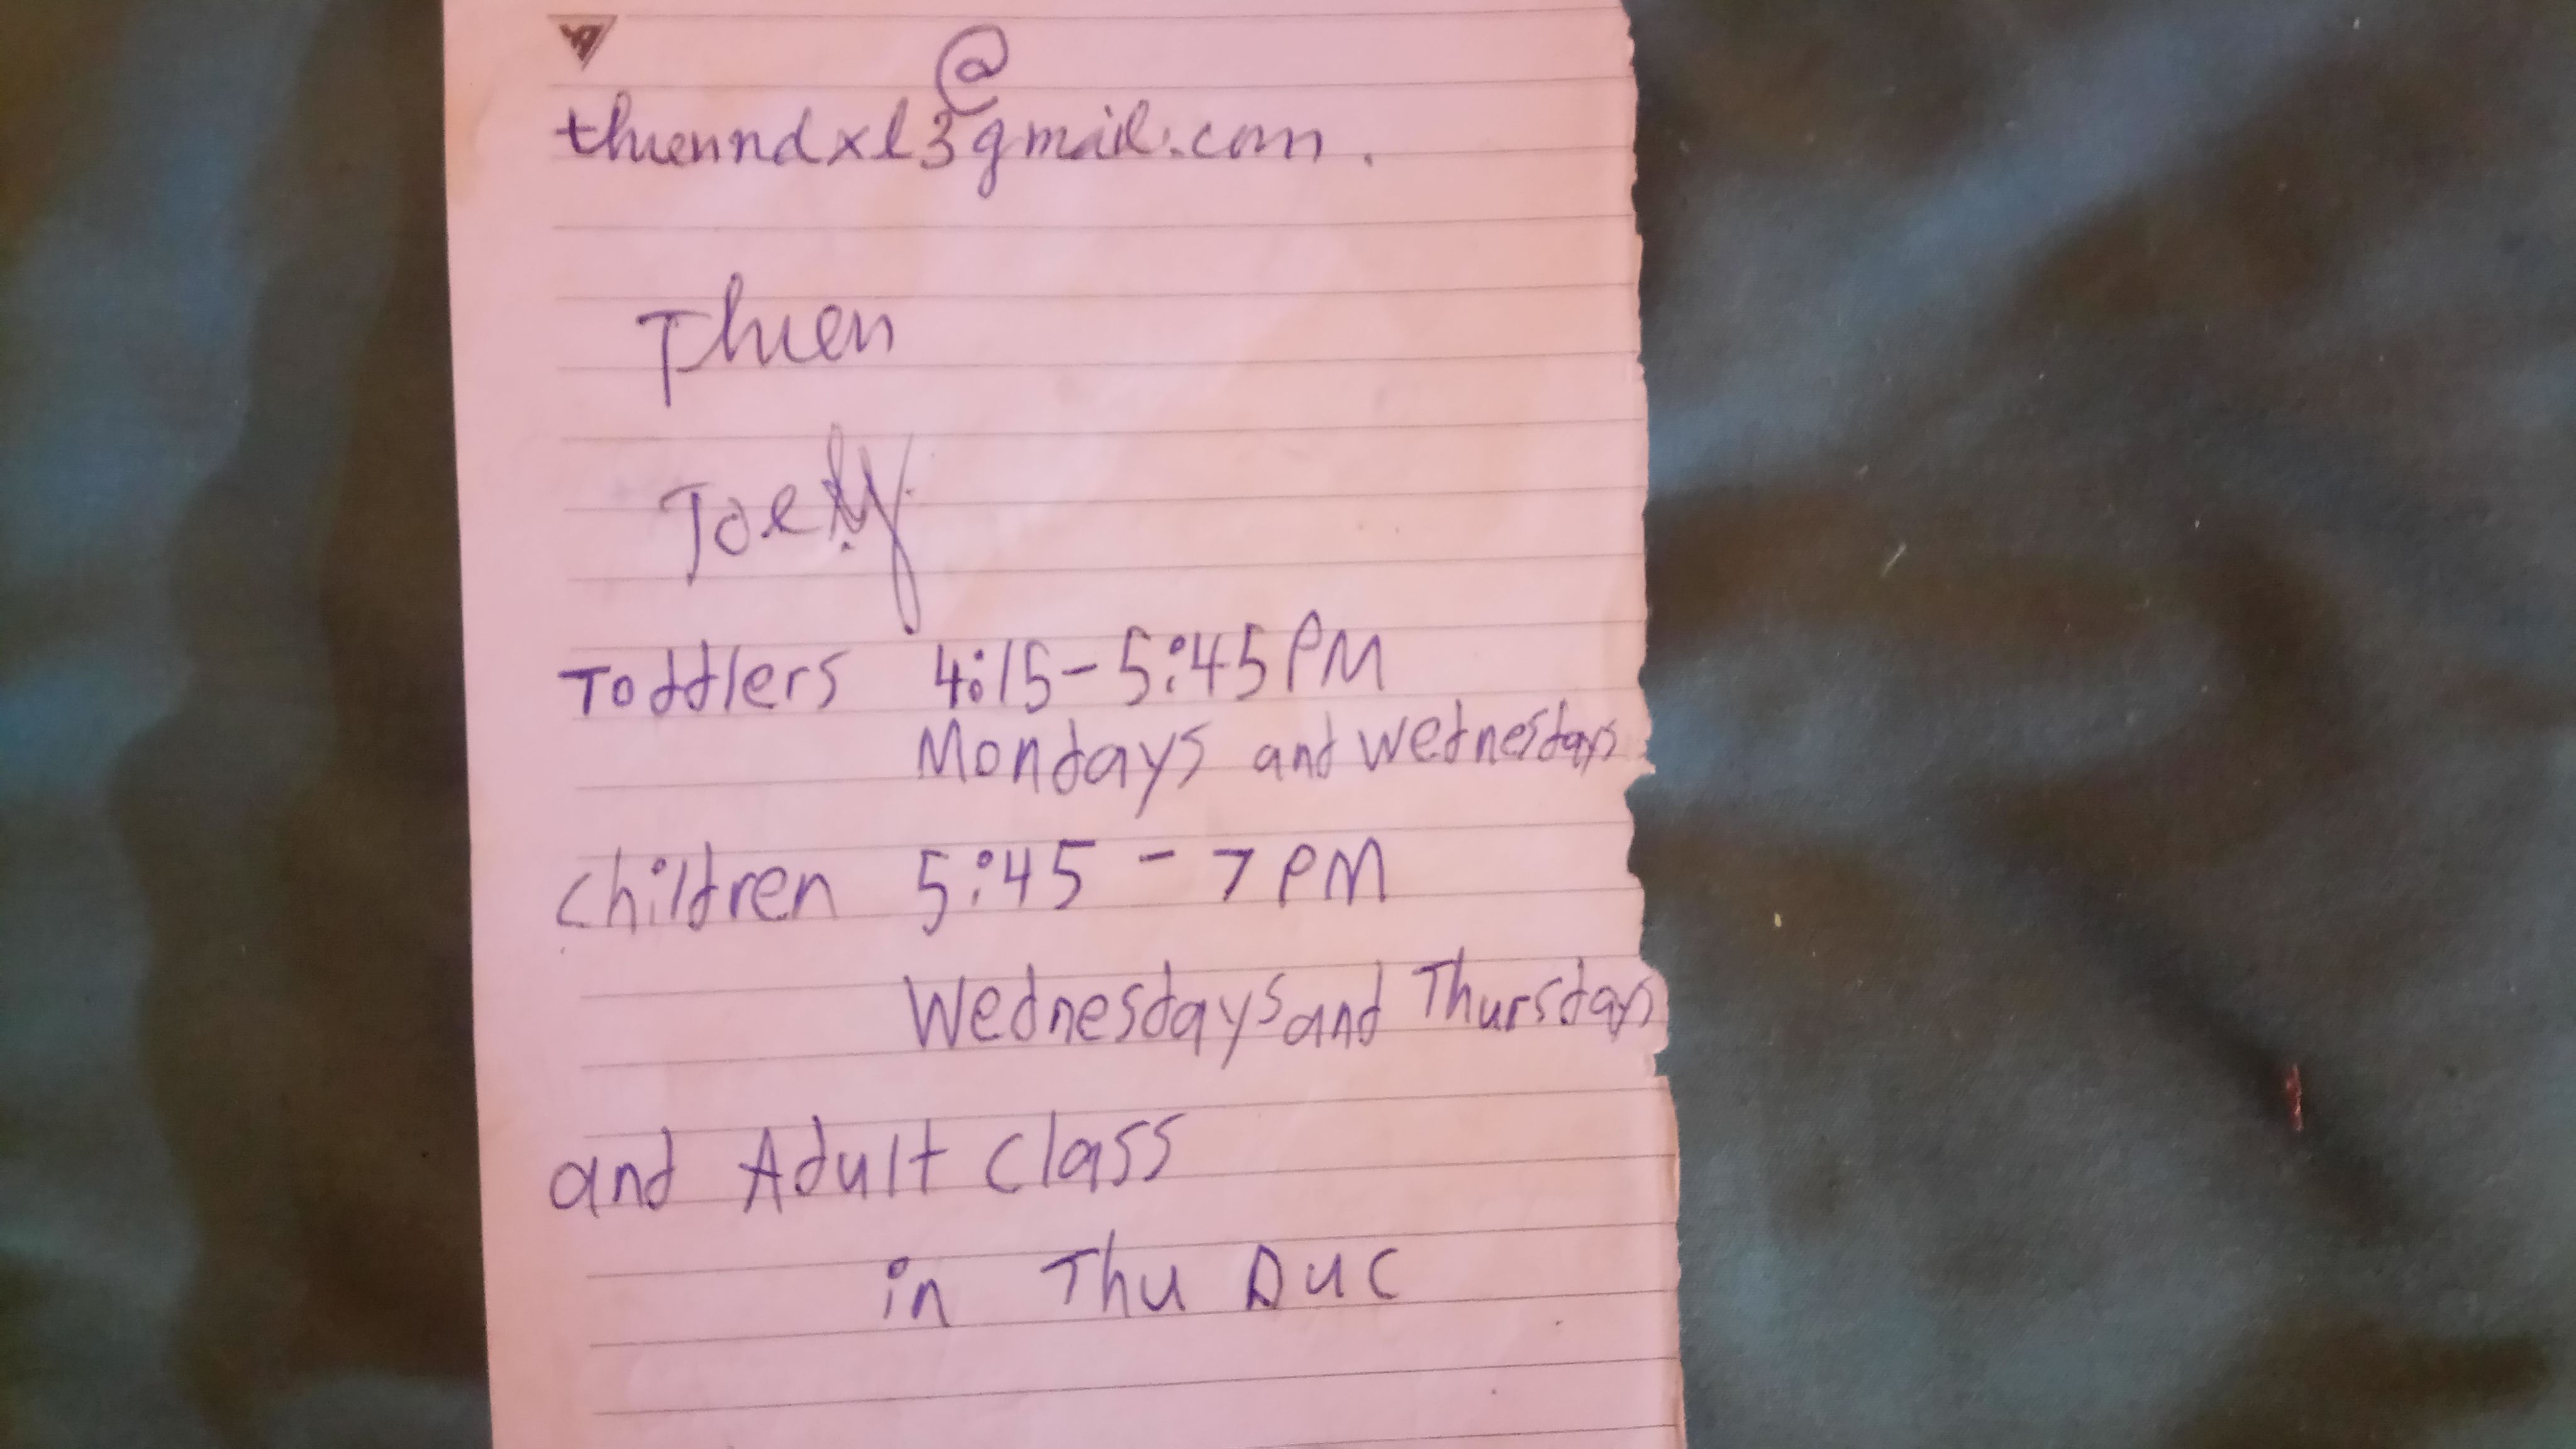 thienndxl3@gmail.com.
Thien
Toddlers 4:15-5:45PM
Mondays and Wednesdays
Children 5:45 - 7PM
Wednesdays and Thursdays
and Adult class
in Thu Duc